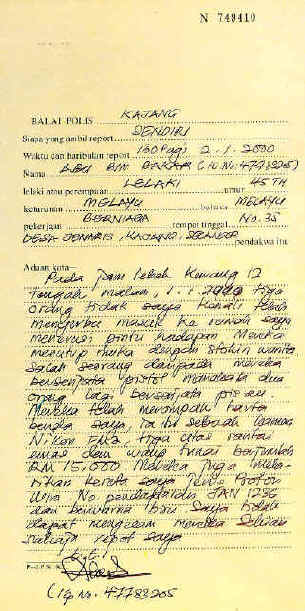 N 749410
BALAI POLIS KAJANG
Siapa yang ambil report SENDIRI
Waktu dan haribulan report 1.00 Pagi 2.1.2000
Nama BIN BAKAR (IC No: 4778325)
lelaki atau perempuan LELAKI umur 45 TH
keturunan MELAYU bahasa MELAYU
pekerjaan BERNIAGA tempat tinggal No. 35
DESA JENARIS, KAJANG, SELANGOR pendakwa itu
Aduan kata:
Pada jam lebih kurang 12
tengah malam 1.1.2000 tiga
orang tidak saya kenali telah
menyerbu masuk ke rumah saya
menerusi pintu hadapan. Mereka
menutup muka dengan stokin wanita
salah seorang daripada mereka
bersenjata pistol manakala dua
orang lagi bersenjata pisau.
Mereka telah merompak harta
benda saya, iaitu sebuah kamera
Nikon FM2, tiga utas rantai
emas dan wang tunai berjumlah
RM 15,000. Mereka juga mela-
rikan kereta saya jenis Proton
Wira No pendaftaran JAN 1236
dan berwarna biru. Saya tidak
dapat mengecam mereka. Sekian
sahaja repot saya
(I/C No. 47783205